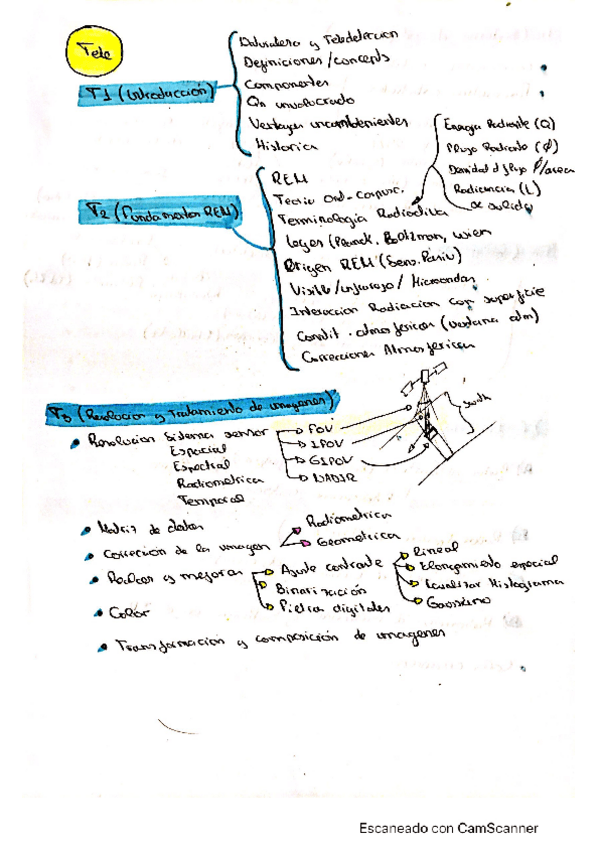 Tele
T1 (Introducción)
Naturaleza y Teledetección
Definiciones/concepts
Componentes
Qn involucrado
Ventajas inconvenientes
Historica
T2 (Fundamentos REM)
REM
Teoria Ond-Corpusc.
Terminología Radioactiva
Energia Radiante (Q)
Flujo Radiante (Ø)
Densidad d flujo Ø/area
Radiancia (L)
Leyes (Planck, Boltzman, Wien
Origen REM (Sens. Pasiv)
Visible/infrarrojo/Microondas
Interaccion Radiacion con superficie
Condit. atmosfericas (ventana atm)
Correcciones Atmosfericas
T3 (Resolucion y Tratamiento de imagenes)
Resolucion Sistema sensor
Espacial
Espectral
Radiometrica
Temporal
FOV
IFOV
GIFOV
NADIR
Swath
Matriz de datos
Corrección de la imagen
Radiometrica
Geometrica
Realces y mejoras
Ajuste contraste
Binarización
Filtros digitales
Lineal
Elongamiento especial
Ecualizar Histograma
Gaussiano
Color
Transformación y composición de imagenes
Escaneado con CamScanner